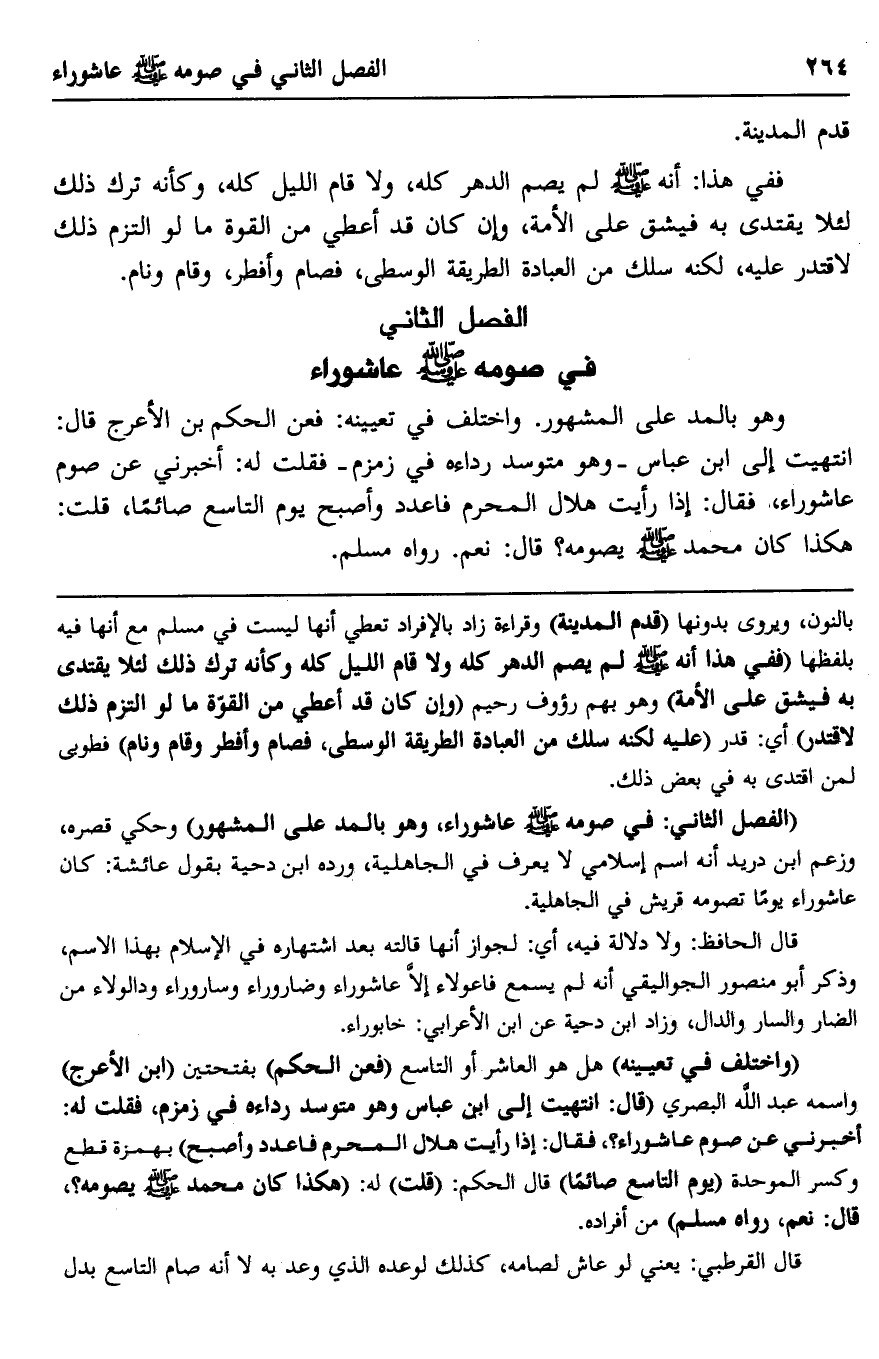 ٢٦٤ الفصل الثاني في صومه ﷺ عاشوراء
قدم المدينة.
ففي هذا: أنه ﷺ لم يصم الدهر كله، ولا قام الليل كله، وكأنه ترك ذلك
لئلا يقتدى به فيشق على الأمة، وإن كان قد أعطي من القوة ما لو التزم ذلك
لاقتدر عليه، لكنه سلك من العبادة الطريقة الوسطى، فصام وأفطر، وقام ونام.
الفصل الثاني
في صومه ﷺ عاشوراء
وهو بالمد على المشهور. واختلف في تعيينه: فعن الحكم بن الأعرج قال:
انتهيت إلى ابن عباس ـ وهو متوسد رداءه في زمزم ـ فقلت له: أخبرني عن صوم
عاشوراء، فقال: إذا رأيت هلال المحرم فاعدد وأصبح يوم التاسع صائمًا، قلت:
هكذا كان محمد ﷺ يصومه؟ قال: نعم. رواه مسلم.
بالنون، ويروى بدونها (قدم المدينة) وقراءة زاد بالإفراد تعطي أنها ليست في مسلم مع أنها فيه
بلفظها (ففي هذا أنه ﷺ لم يصم الدهر كله ولا قام الليل كله وكأنه ترك ذلك لئلا يقتدى
به فيشق على الأمة) وهو بهم رؤوف رحيم (وإن كان قد أعطي من القوّة ما لو التزم ذلك
لاقتدر) أي: قدر (عليه لكنه سلك من العبادة الطريقة الوسطى، فصام وأفطر وقام ونام) فطوبى
لمن اقتدى به في بعض ذلك.
(الفصل الثاني: في صومه ﷺ عاشوراء، وهو بالمد على المشهور) وحكي قصره،
وزعم ابن دريد أنه اسم إسلامي لا يعرف في الجاهلية، ورده ابن دحية بقول عائشة: كان
عاشوراء يومًا تصومه قريش في الجاهلية.
قال الحافظ: ولا دلالة فيه، أي: لجواز أنها قالته بعد اشتهاره في الإسلام بهذا الاسم،
وذكر أبو منصور الجواليقي أنه لم يسمع فاعولاء إلاَّ عاشوراء وضاروراء وساروراء ودالولاء من
الضار والسار والدال، وزاد ابن دحية عن ابن الأعرابي: خابوراء.
(واختلف في تعيينه) هل هو العاشر أو التاسع (فعن الحكم) بفتحتين (ابن الأعرج)
واسمه عبد اللَّه البصري (قال: انتهيت إلى ابن عباس وهو متوسد رداءه في زمزم، فقلت له:
أخبرني عن صوم عاشوراء؟، فقال: إذا رأيت هلال المحرم فاعدد وأصبح) بهمزة قطع
وكسر الموحدة (يوم التاسع صائمًا) قال الحكم: (قلت) له: (هكذا كان محمد ﷺ يصومه؟،
قال: نعم، رواه مسلم) من أفراده.
قال القرطبي: يعني لو عاش لصامه، كذلك لوعده الذي وعد به لا أنه صام التاسع بدل